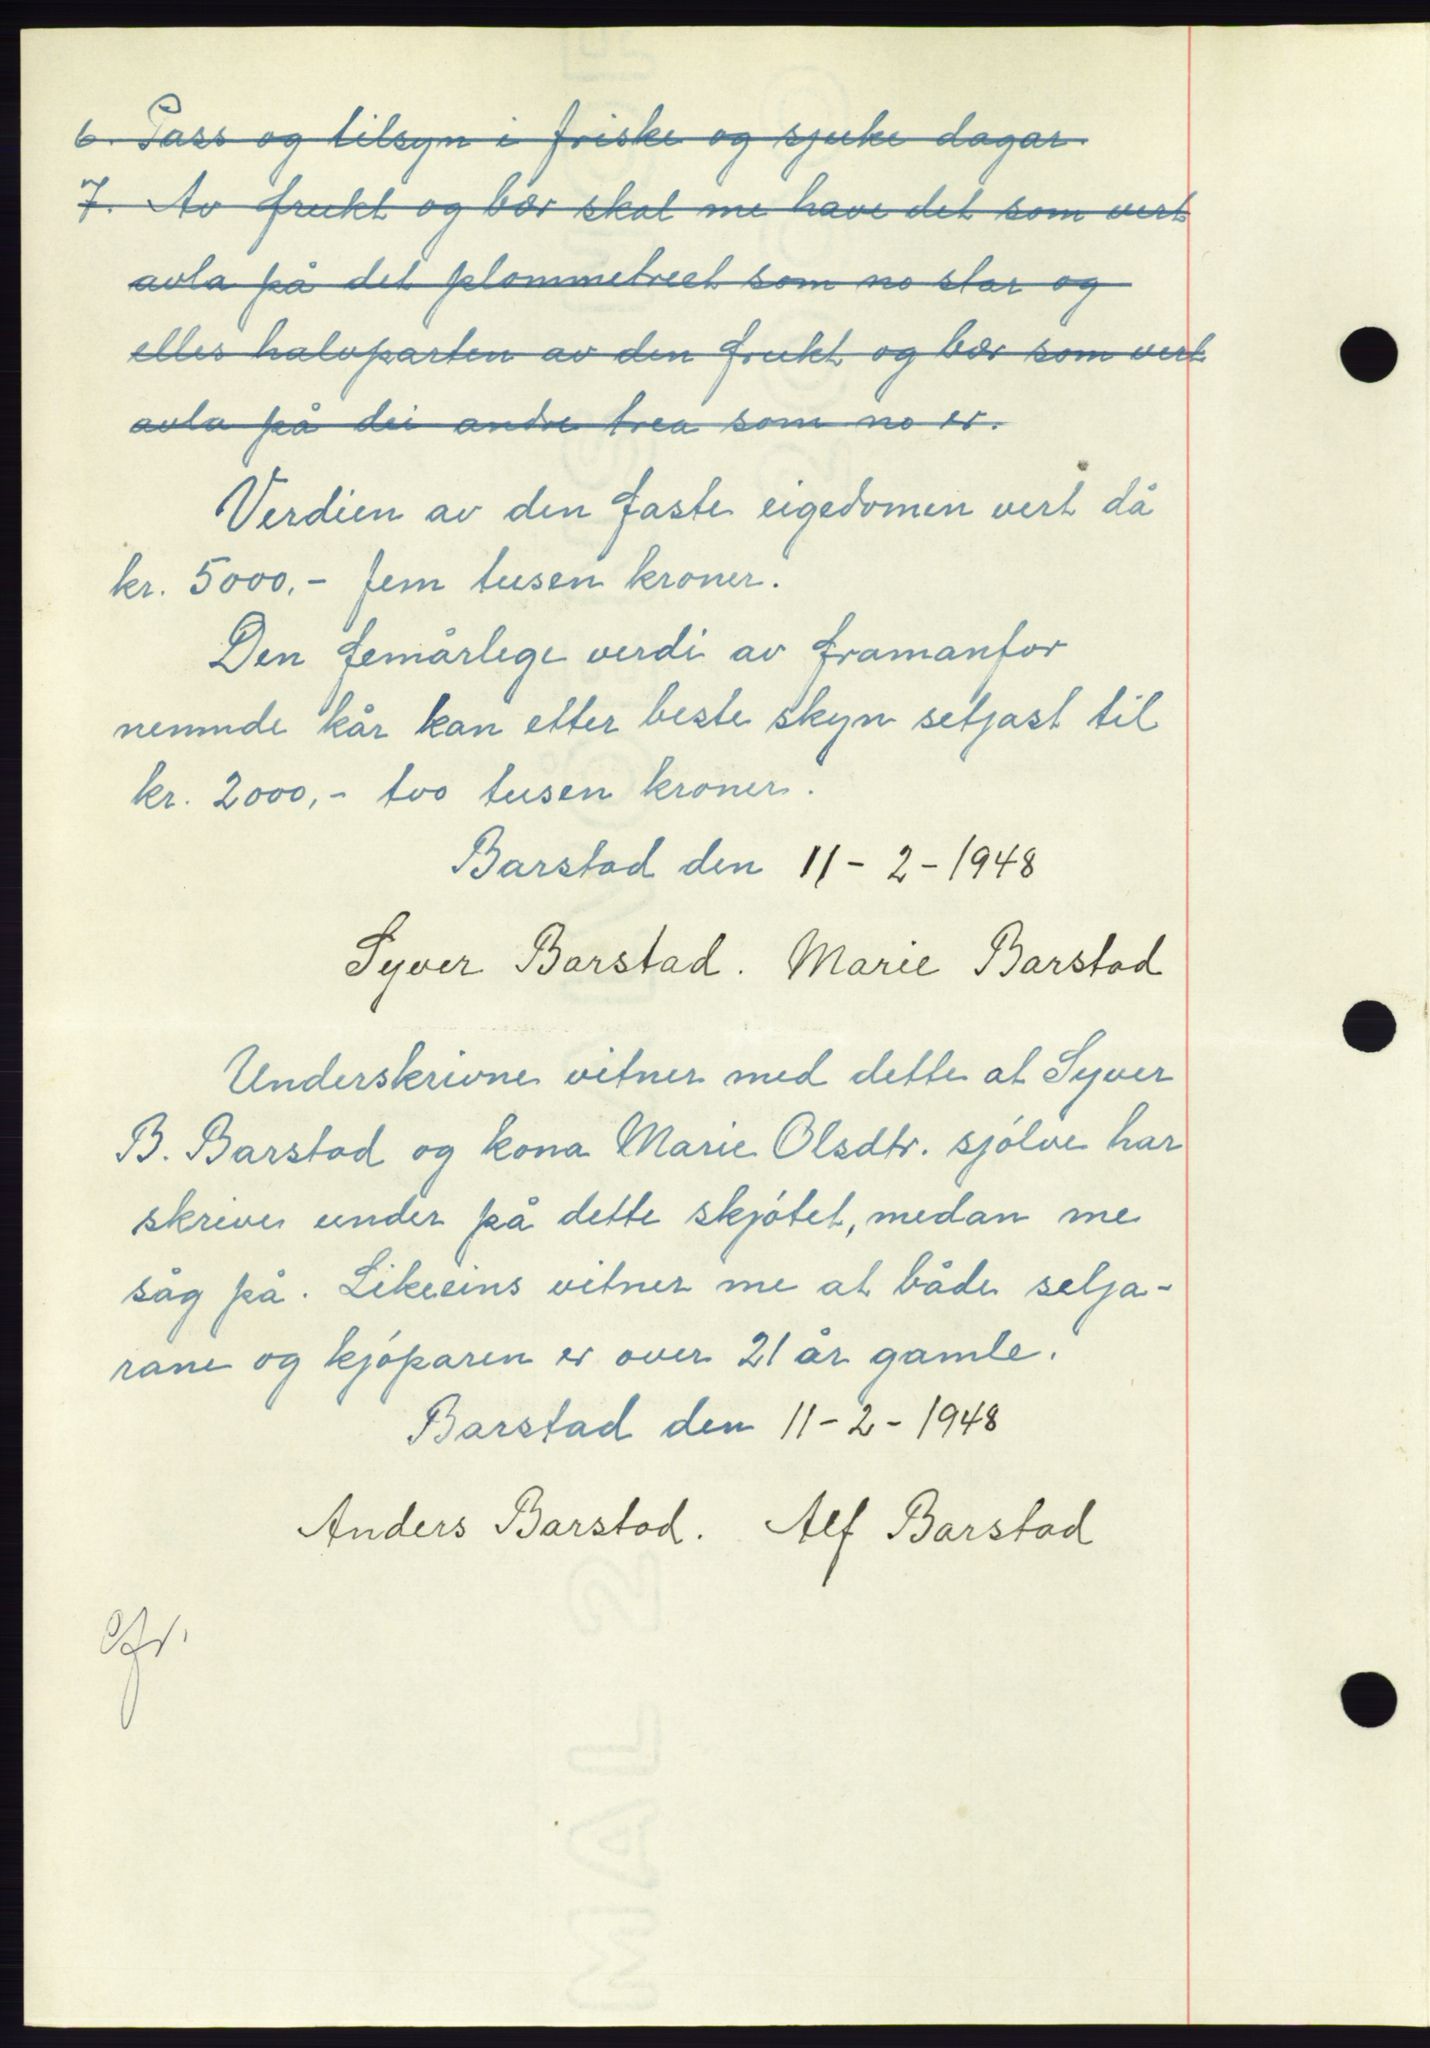 6. Pass og tilsyn i friske og sjuke dagar.
7. Av frukt og bær skal me have det som vert
avla på det plommetreet som no star og
elles halvparten av den frukt og bær som vert
avla på dei andre trea som no er.
Verdien av den faste eigedomen vert då
kr. 5000,- fem tusen kroner.
Den femårlege verdi av framanfor
nemnde kår kan etter beste skyn setjast til
kr. 2000,- tvo tusen kroner.
Barstad den 11-2-1948
Syver Barstad. Marie Barstad
Underskrivne vitner med dette at Syver
B. Barstad og kona Marie Olsdtr. sjølve har
skrive under på dette skjøtet, medan me
såg på. Likeeins vitner me at både selja-
rane og kjøparen er over 21 år gamle.
Barstad den 11-2-1948
Anders Barstad. Alf Barstad